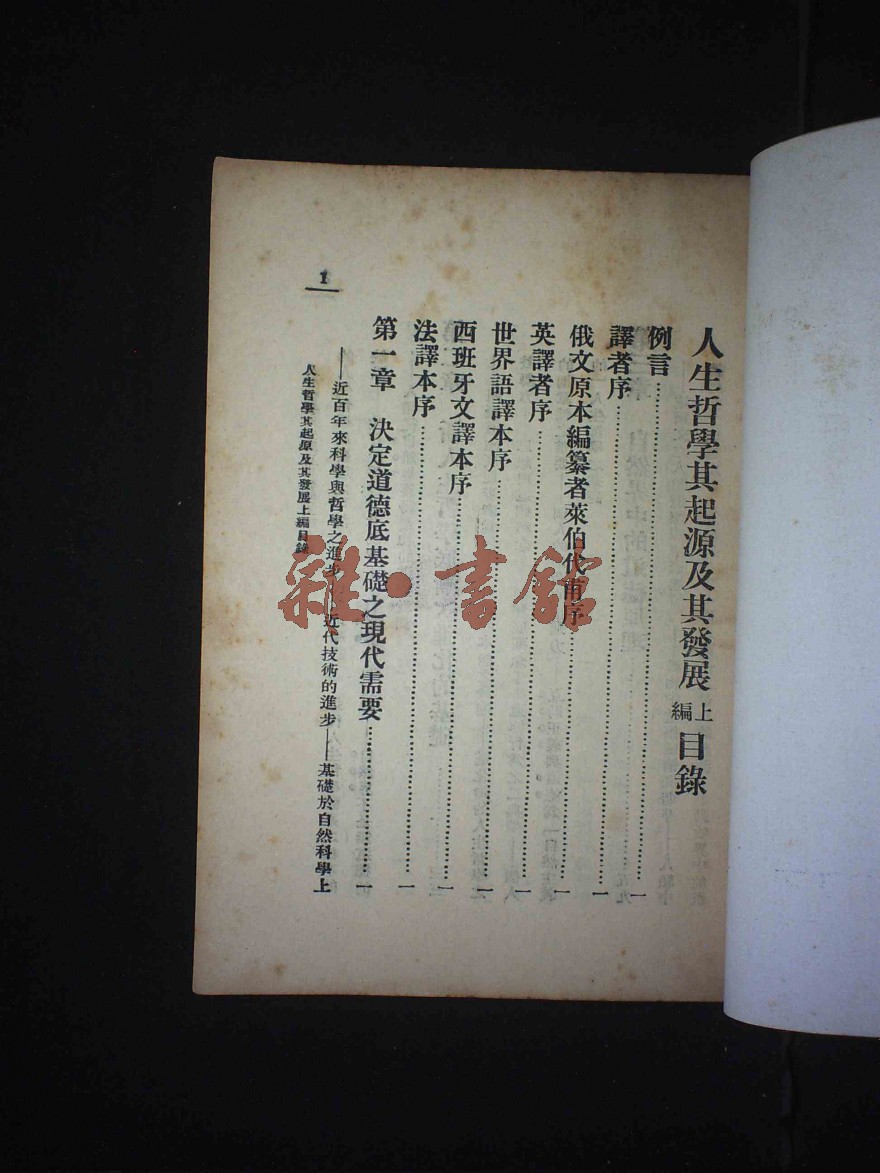 人生哲學其起源及其發展 上編 目錄
例言……一
譯者序……一
俄文原本編纂者萊伯代甫序……一
英譯者序……一
世界語譯本序……一
西班牙文譯本序……一
法譯本序……一
第一章 決定道德底基礎之現代需要……一
——近百年來科學與哲學之進步——近代技術的進步——基礎於自然科學上
人生哲學其起原及其發展上編目錄
1
雜·書館